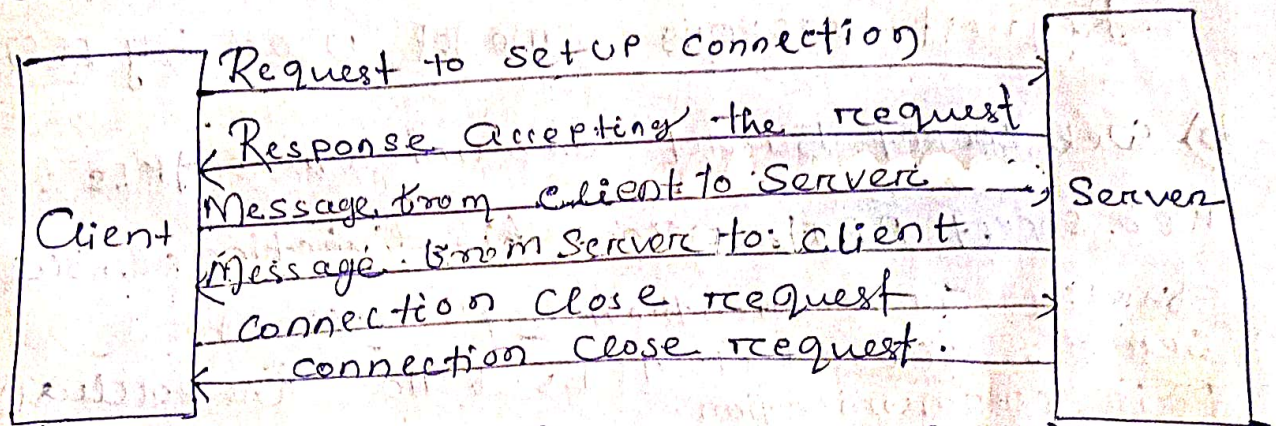 Request to setup connection
Response accepting the request
Message from client to Server
Client
Server
Message from Server to client.
connection close request
connection close request.